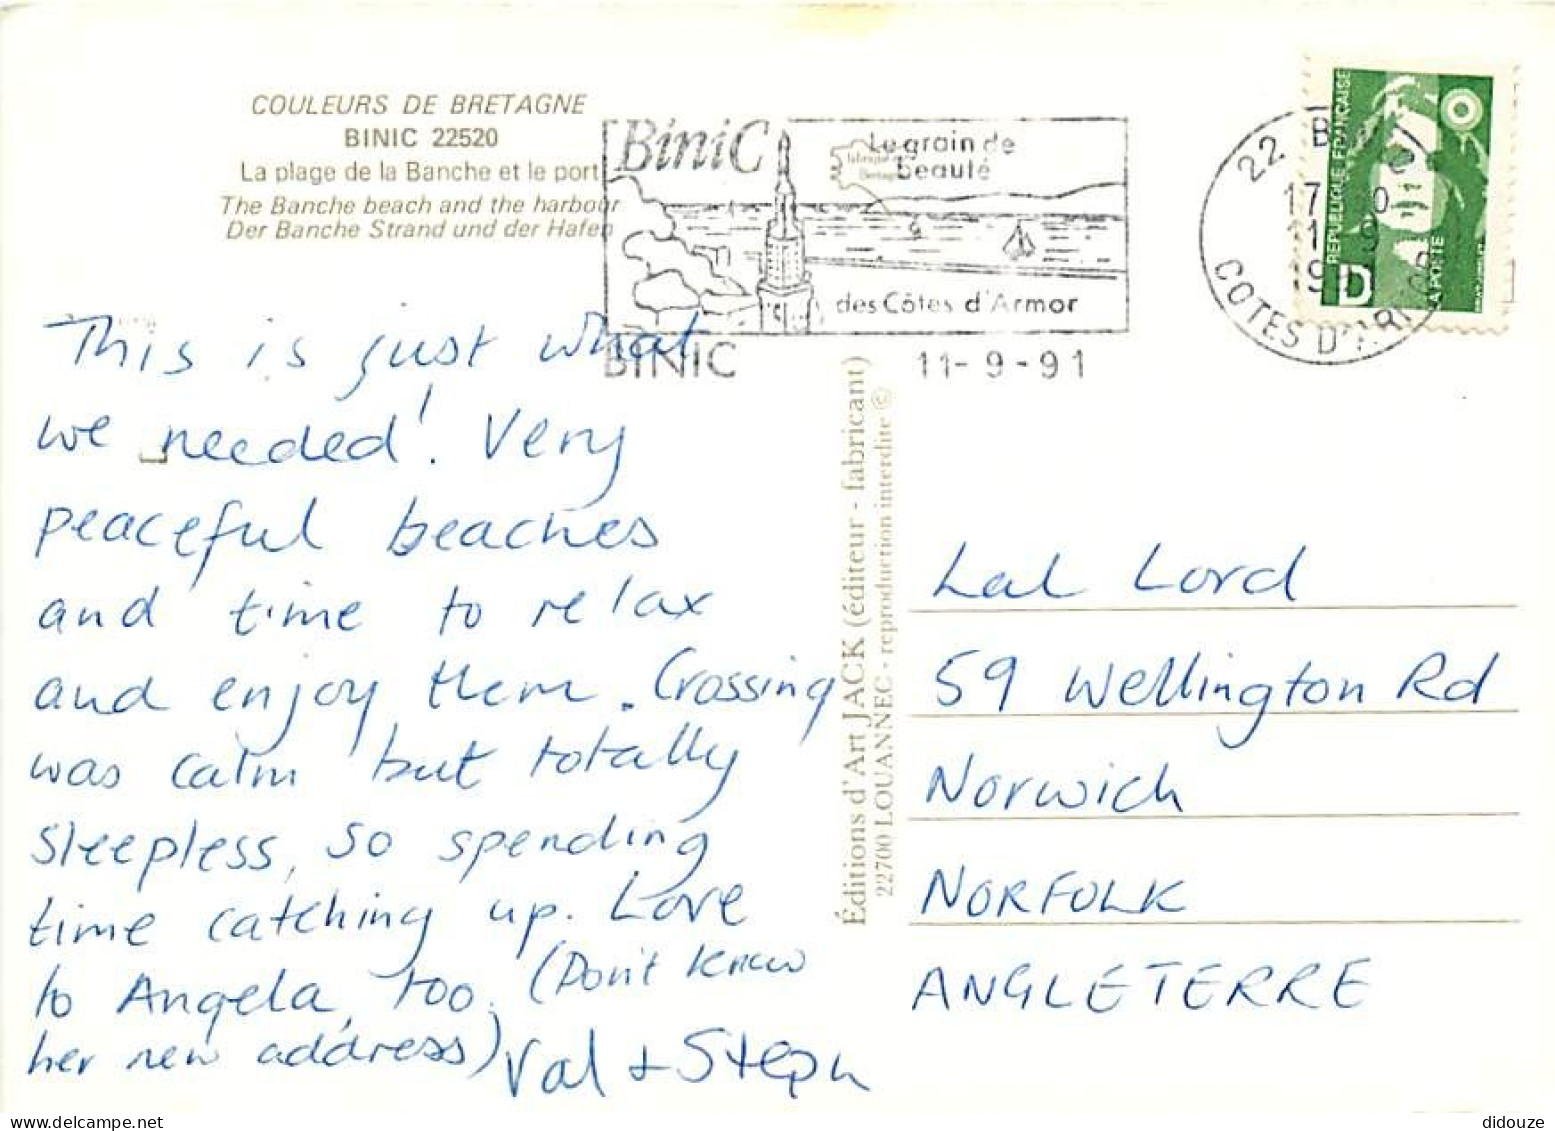 COULEURS DE BRETAGNE
BINIC 22520
La plage de la Banche et le port
The Banche beach and the harbour
Der Banche Strand und der Hafen
BiniC
Le grain de
beauté
des Côtes d'Armor
BINIC
11-9-91
22
17
11 9
19
COTES D'AR
REPUBLIQUE FRANÇAISE
D
LA POSTE
This is just what
we needed! Very
peaceful beaches
and time to relax
and enjoy them. Crossing
was calm but totally
sleepless, so spending
time catching up. Love
to Angela, too. (Don't know
her new address)
Val + Steph
Éditions d'Art JACK (éditeur - fabricant)
22700 LOUANNEC - reproduction interdite ©
Lal Lord
59 Wellington Rd
Norwich
NORFOLK
ANGLETERRE
didouze